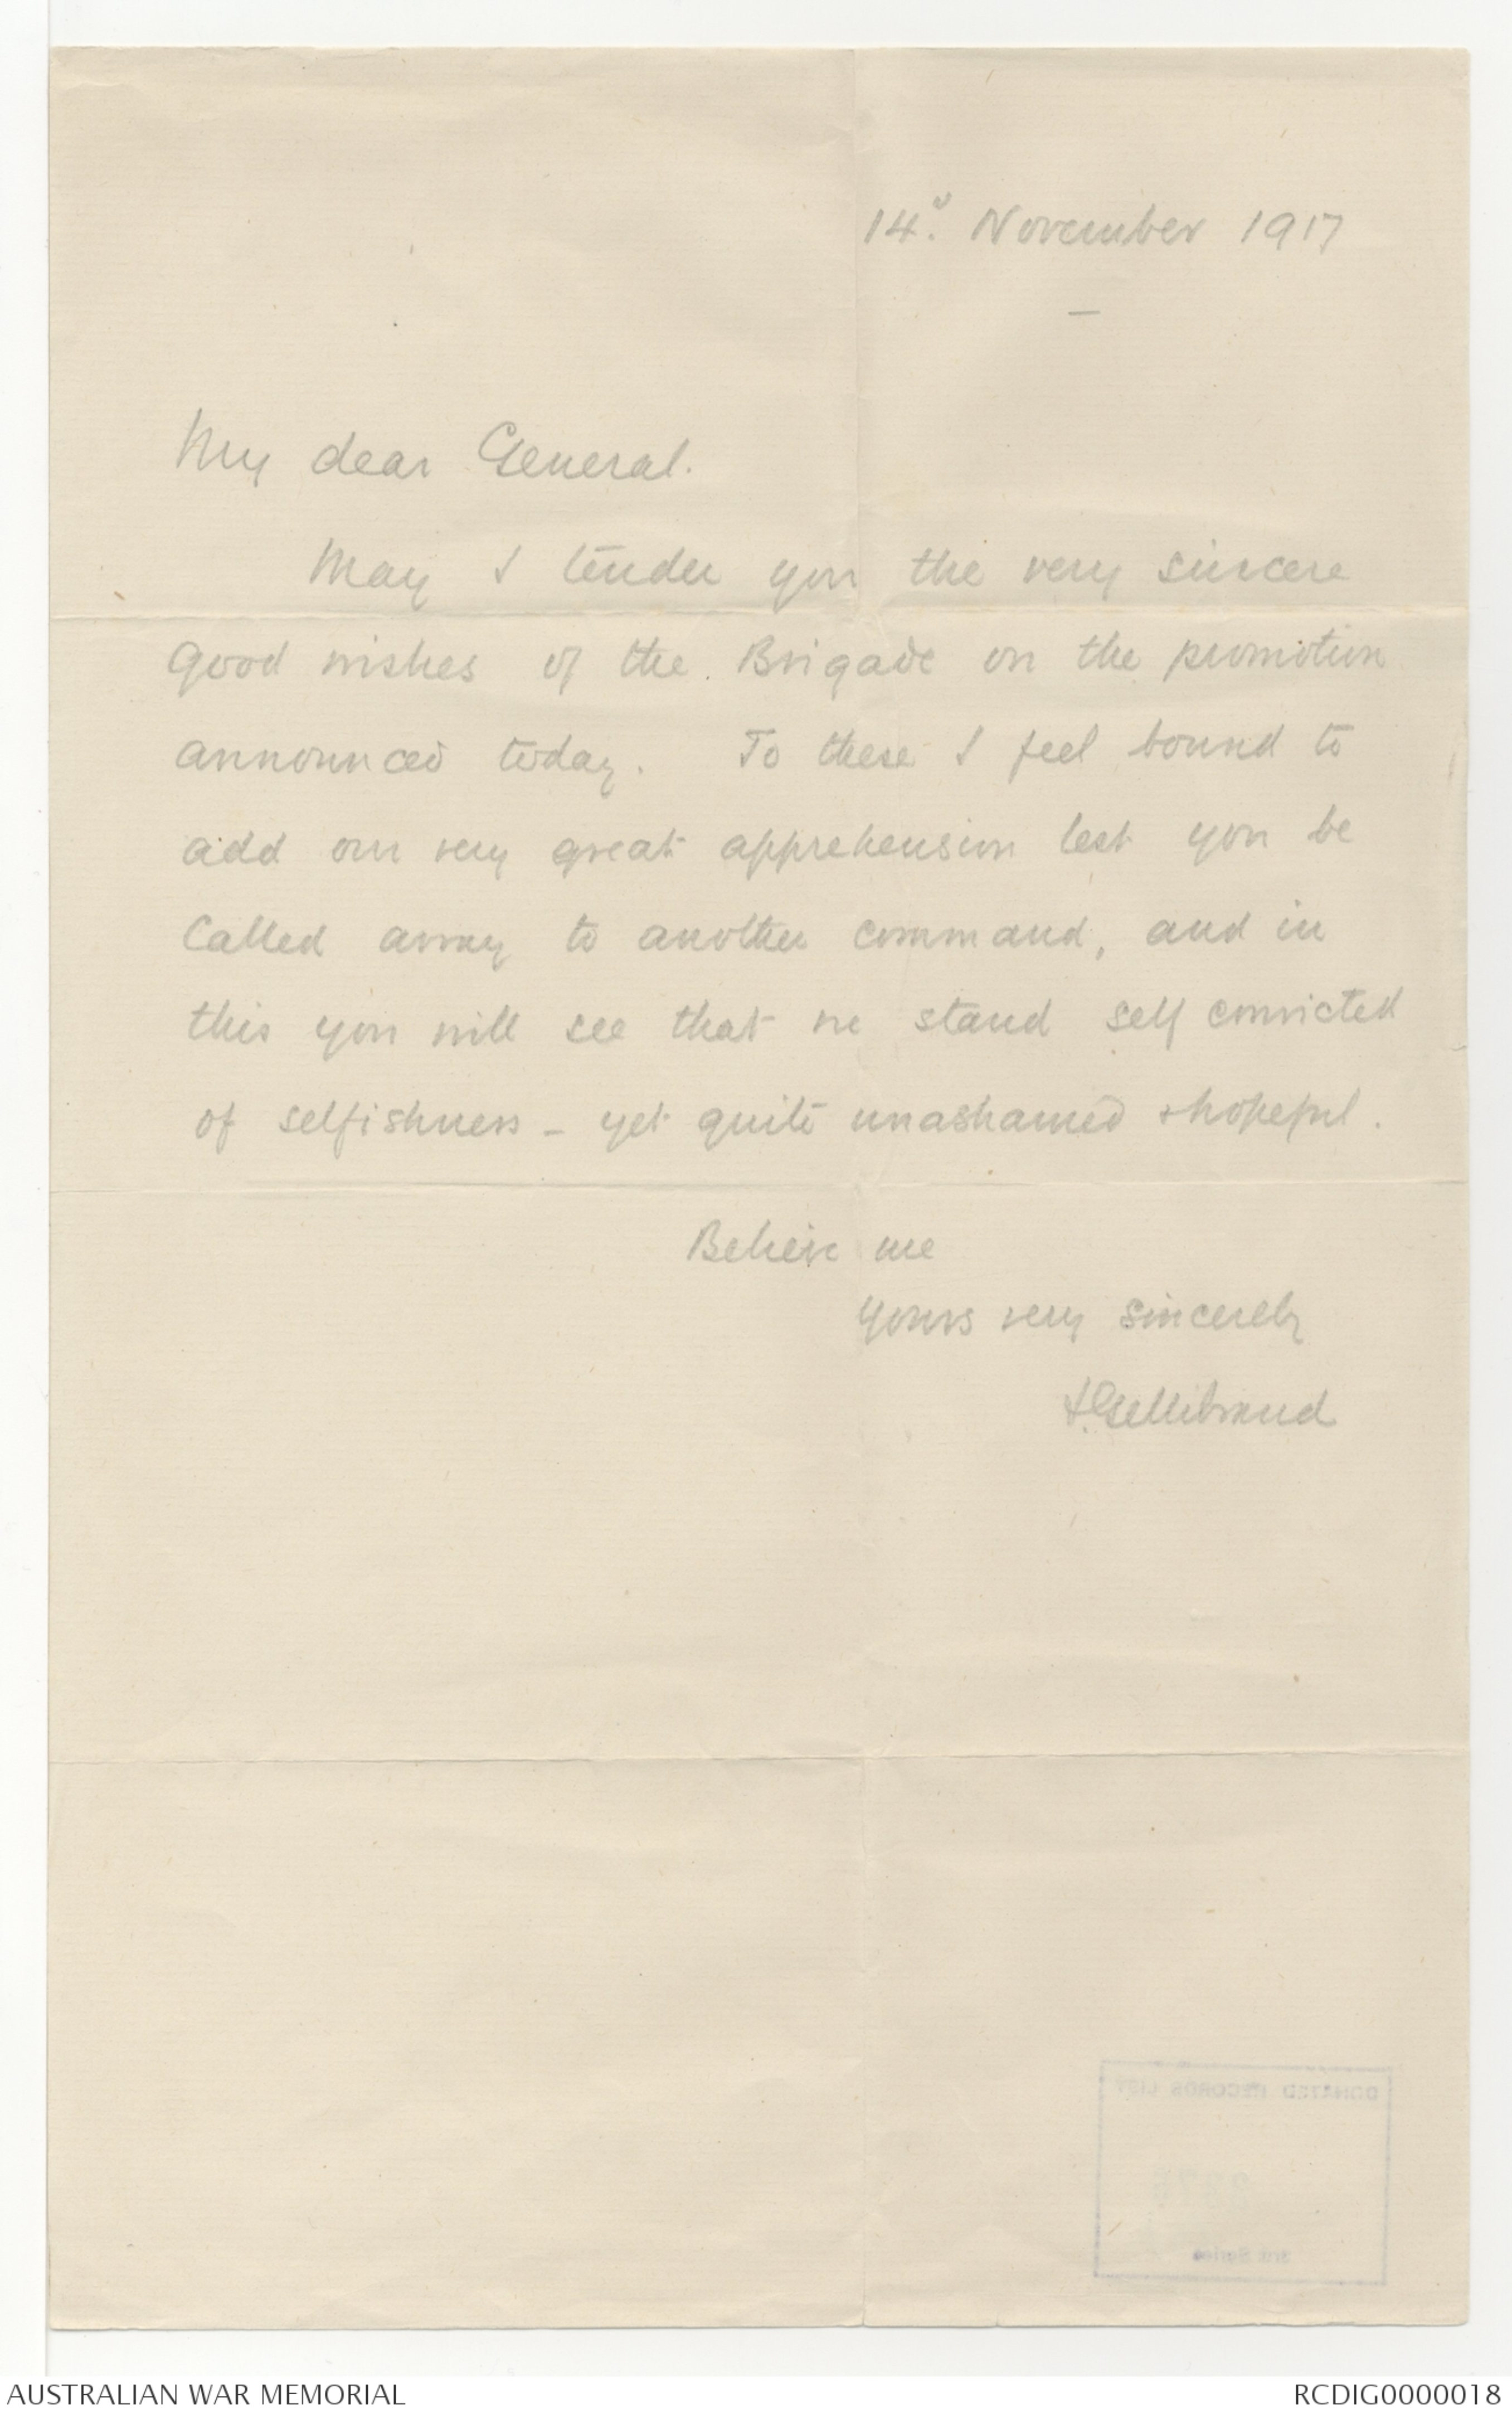 14. November 1917
My dear General.
May I tender you the very sincere
good wishes of the Brigade on the promotion
announced today. To these I feel bound to
add our very great apprehension lest you be
called away to another command, and in
this you will see that we stand self convicted
of selfishness - yet quite unashamed & hopeful.
Believe me
yours very sincerely
J.Gellibrand
DONATED RECORDS LIST
3rd Series
AUSTRALIAN WAR MEMORIAL
RCDIG0000018